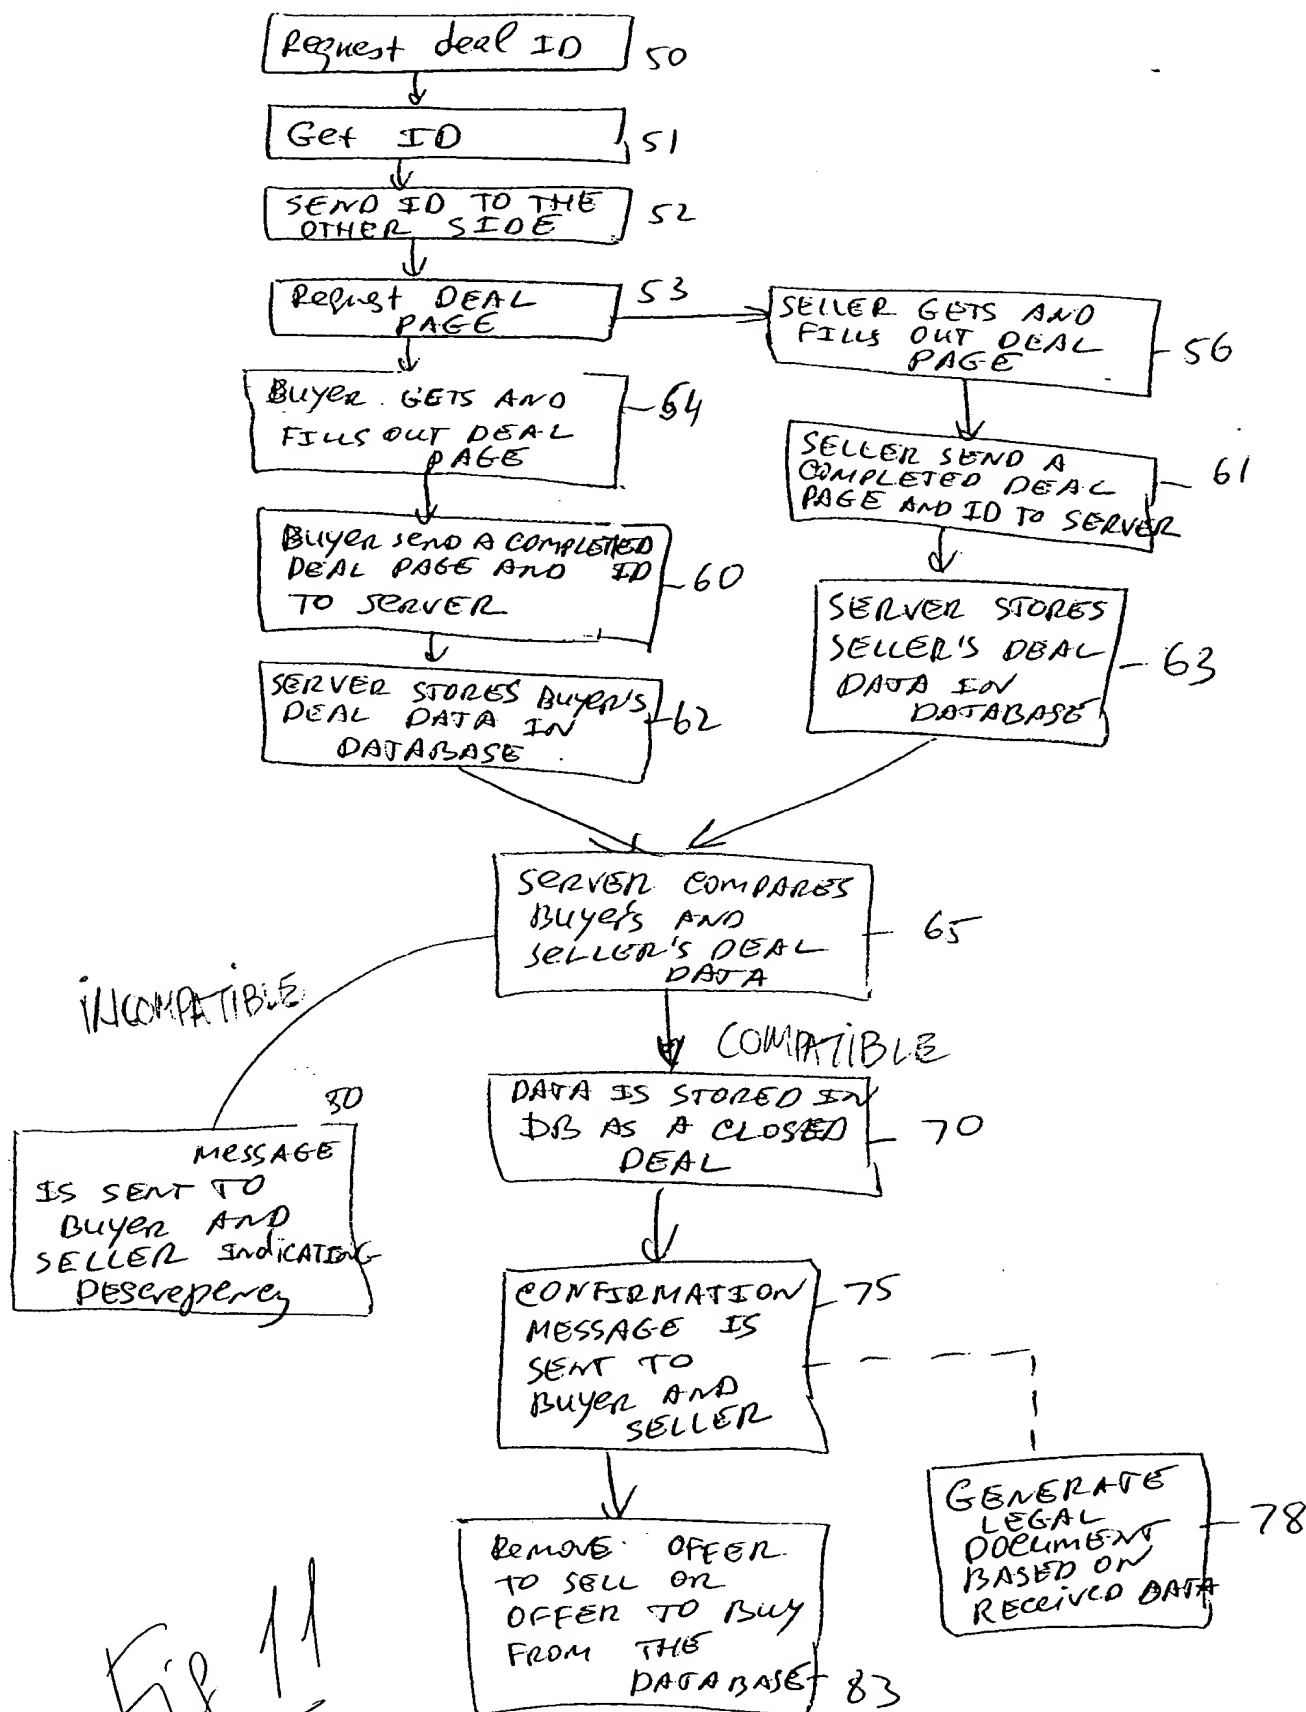 Request deal ID
50
Get ID
51
SEND ID TO THE
OTHER SIDE
52
Request DEAL
PAGE
53
SELLER GETS AND
FILLS OUT DEAL
PAGE
56
Buyer GETS AND
FILLS OUT DEAL
PAGE
54
SELLER SEND A
COMPLETED DEAL
PAGE AND ID TO SERVER
61
Buyer send A COMPLETED
DEAL PAGE AND ID
TO SERVER
60
SERVER STORES
SELLER'S DEAL
DATA IN
DATABASE
63
SERVER STORES Buyer's
DEAL DATA IN
DATABASE
62
SERVER COMPARES
Buyer's AND
SELLER'S DEAL
DATA
65
INCOMPATIBLE
COMPATIBLE
MESSAGE
IS SENT TO
Buyer AND
SELLER INDICATING
DEScrepency
DATA IS STORED IN
DB AS A CLOSED
DEAL
70
CONFIRMATION
MESSAGE IS
SENT TO
Buyer AND
SELLER
75
GENERATE
LEGAL
DOCUMENT
BASED ON
RECEIVED DATA
78
Remove OFFER
TO SELL OR
OFFER TO BUY
FROM THE
DATABASE
83
Fig 11